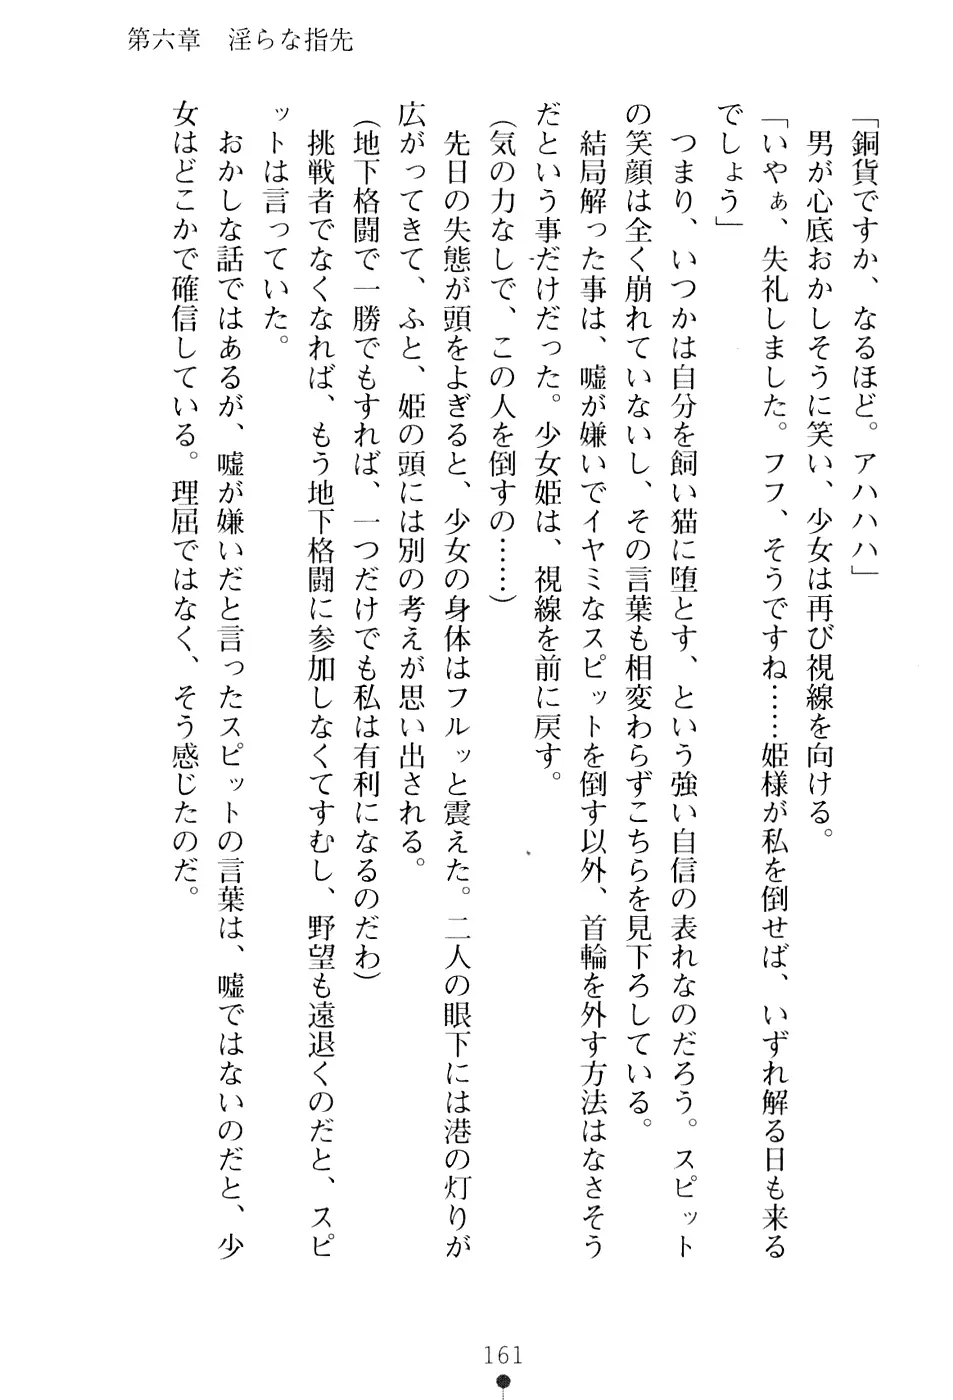 第六章　淫らな指先
「銅貨ですか、なるほど。アハハハ」
　男が心底おかしそうに笑い、少女は再び視線を向ける。
「いやぁ、失礼しました。フフ、そうですね……姫様が私を倒せば、いずれ解る日も来る
でしょう」
　つまり、いつかは自分を飼い猫に堕とす、という強い自信の表れなのだろう。スピット
の笑顔は全く崩れていないし、その言葉も相変わらずこちらを見下ろしている。
　結局解った事は、嘘が嫌いでイヤミなスピットを倒す以外、首輪を外す方法はなさそう
だという事だけだった。少女姫は、視線を前に戻す。
（気の力なしで、この人を倒すの……）
　先日の失態が頭をよぎると、少女の身体はフルッと震えた。二人の眼下には港の灯りが
広がってきて、ふと、姫の頭には別の考えが思い出される。
（地下格闘で一勝でもすれば、一つだけでも私は有利になるのだわ）
　挑戦者でなくなれば、もう地下格闘に参加しなくてすむし、野望も遠退くのだと、スピ
ットは言っていた。
　おかしな話ではあるが、嘘が嫌いだと言ったスピットの言葉は、嘘ではないのだと、少
女はどこかで確信している。理屈ではなく、そう感じたのだ。
161